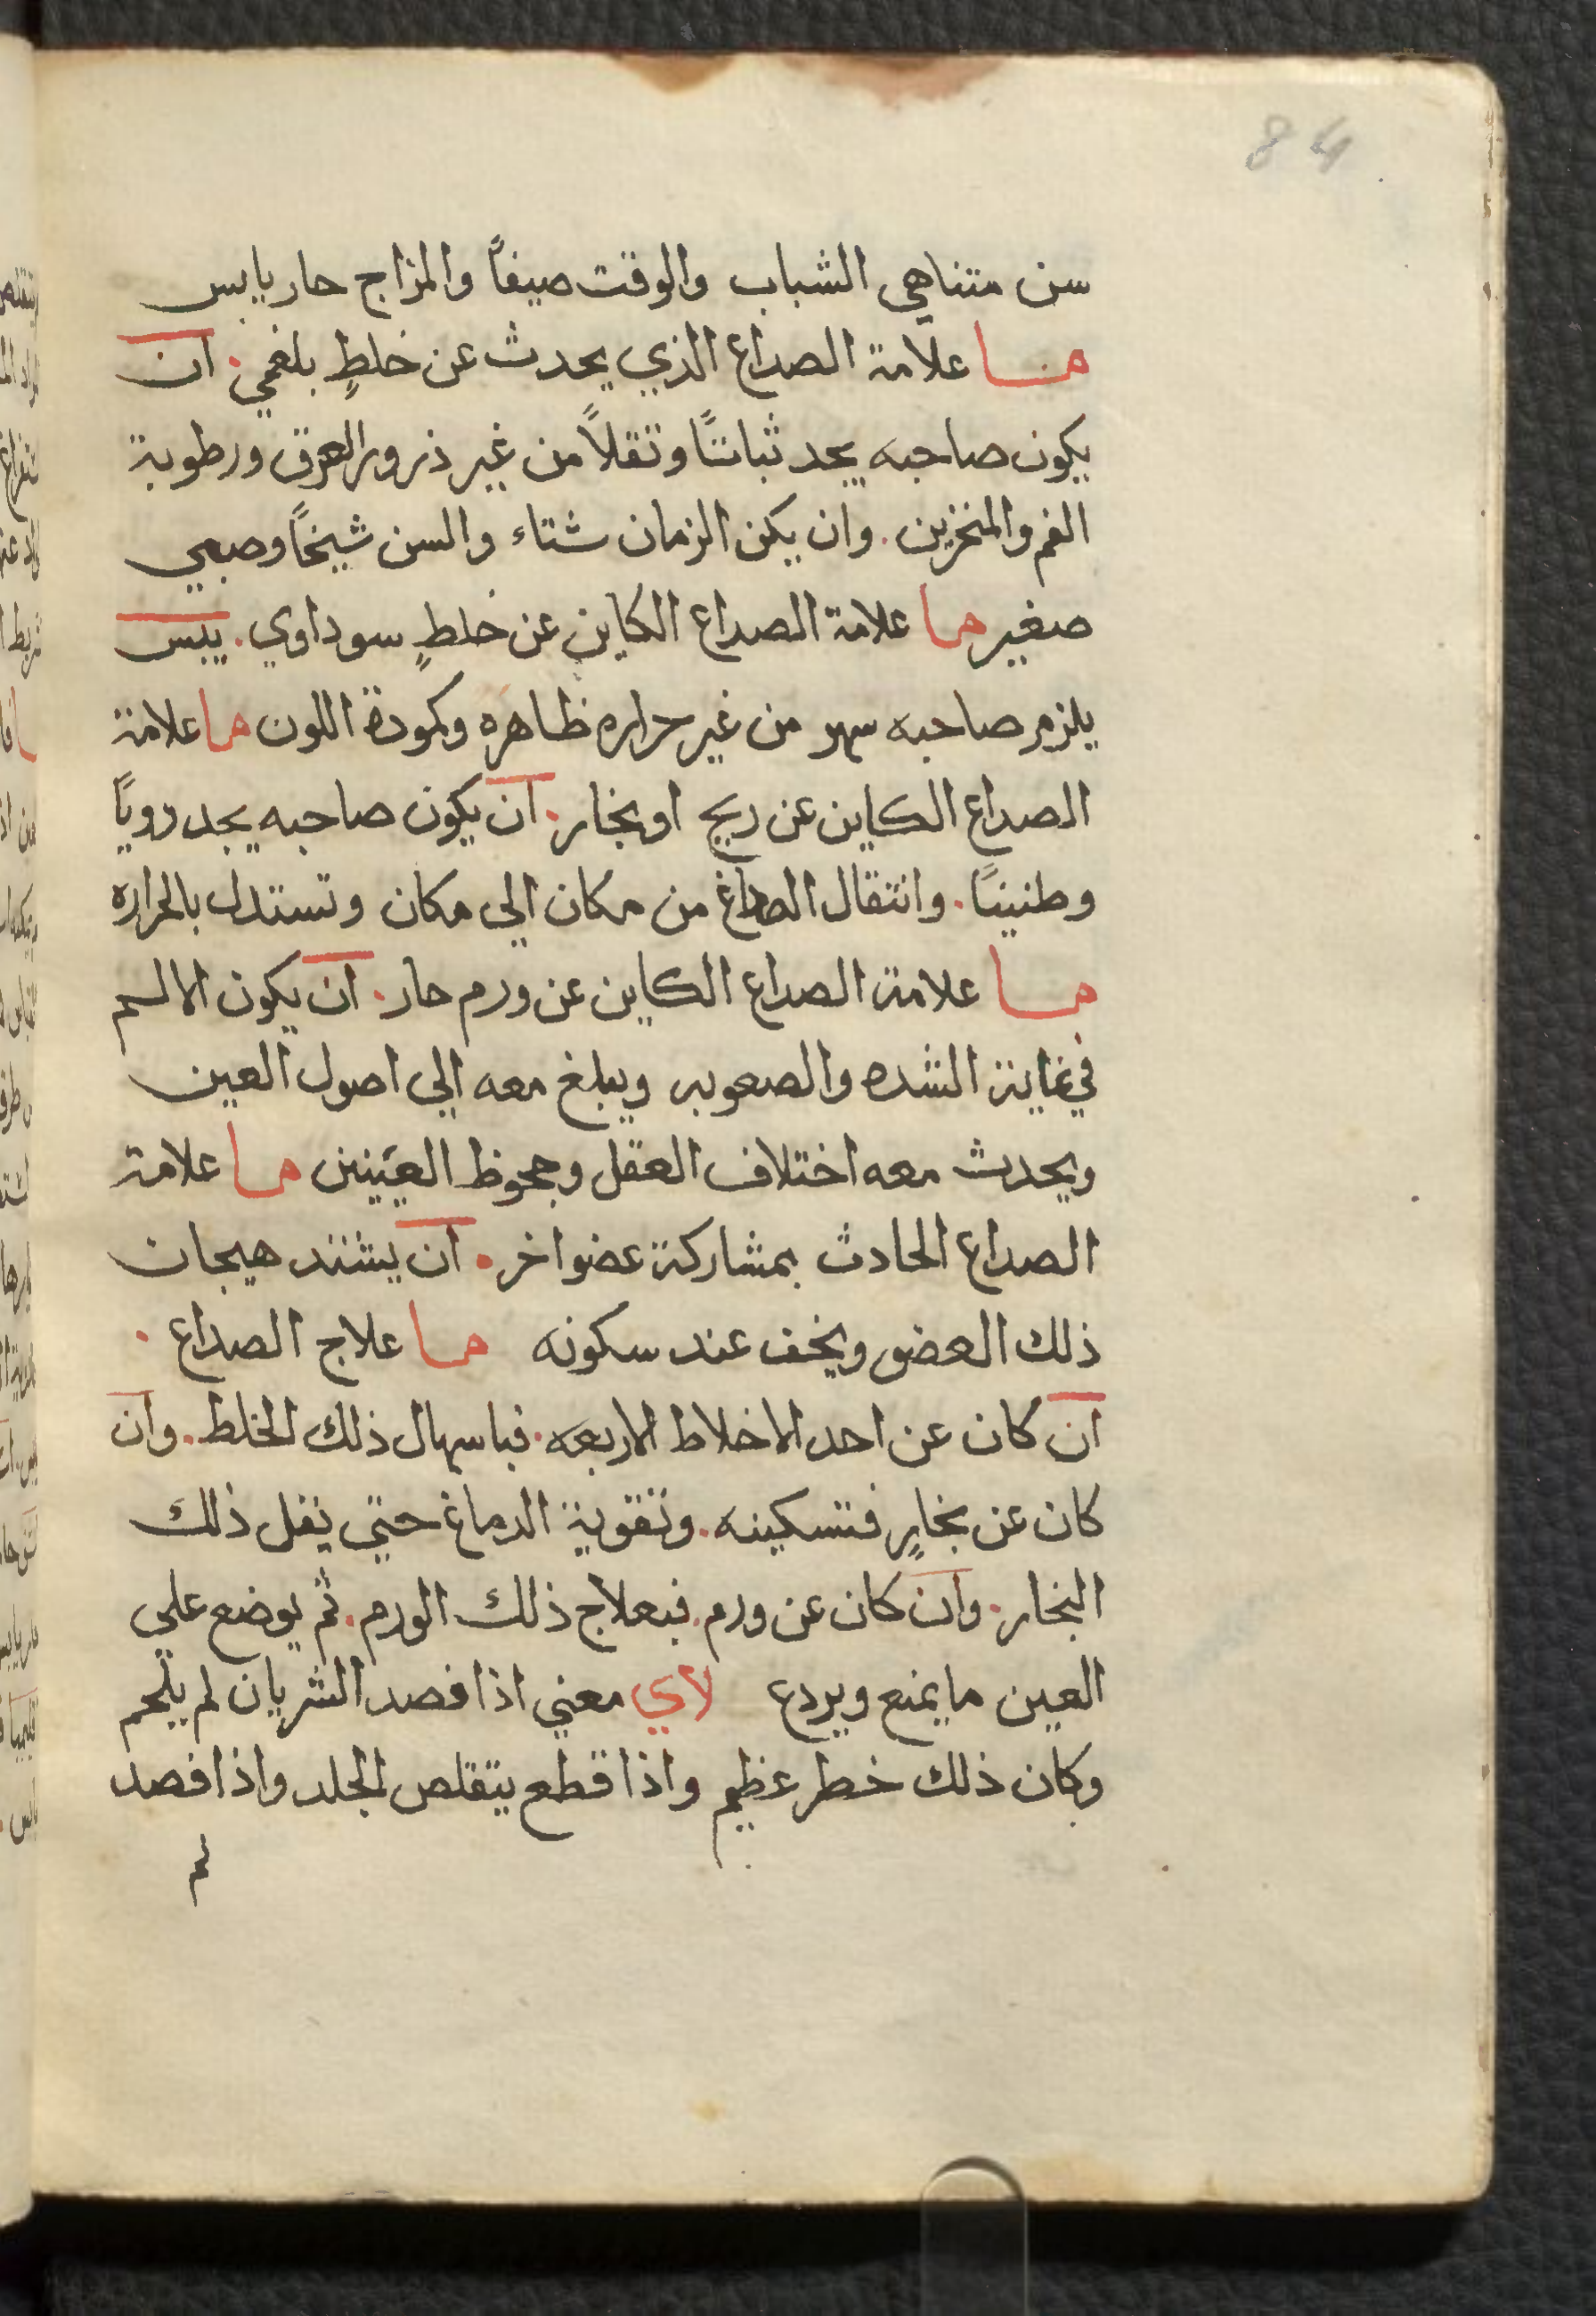 84
سن متناهي الشباب والوقت صيفاً والمزاج حار يابس
ما علامة الصداع الذي يحدث عن خلطٍ بلغمي. ان
يكون صاحبه يجد ثباتًا وتقلاً من غير ذرور العرق ورطوبة
الفم والمنخرين. وان يكن الزمان شتاء والسن شيخاً وصبي
صغير ما علامة الصداع الكاين عن خلطٍ سوداوي. يبس
يلزم صاحبه سهر من غير حراره ظاهره وكمودة اللون ما علامة
الصداع الكاين عن ريح او بخار. ان يكون صاحبه يجد دوياً
وطنيناً. وانتقال الصداغ من مكان الي مكان وتستدل بالحراره
ما علامة الصداع الكاين عن ورم حار. ان يكون الالم
في غاية الشده والصعوبه ويبلغ معه الي اصول العين
ويحدث معه اختلاف العقل وجحوظ العينين ما علامة
الصداع الحادث بمشاركة عضو اخر. ان يشتد هيجان
ذلك العضو ويخف عند سكونه ما علاج الصداع.
ان كان عن احد الاخلاط الاربعه. فباسهال ذلك الخلط. وان
كان عن بخارٍ فتسكينه. وتقوية الدماغ حتي يقل ذلك
البخار. وان كان عن ورم. فبعلاج ذلك الورم. ثم يوضع علي
العين ما يمنع ويردع لاي معني اذا فصد الشريان لم يلحم
وكان ذلك خطر عظيم واذا قطع يتقلص الجلد واذا فصد
لم